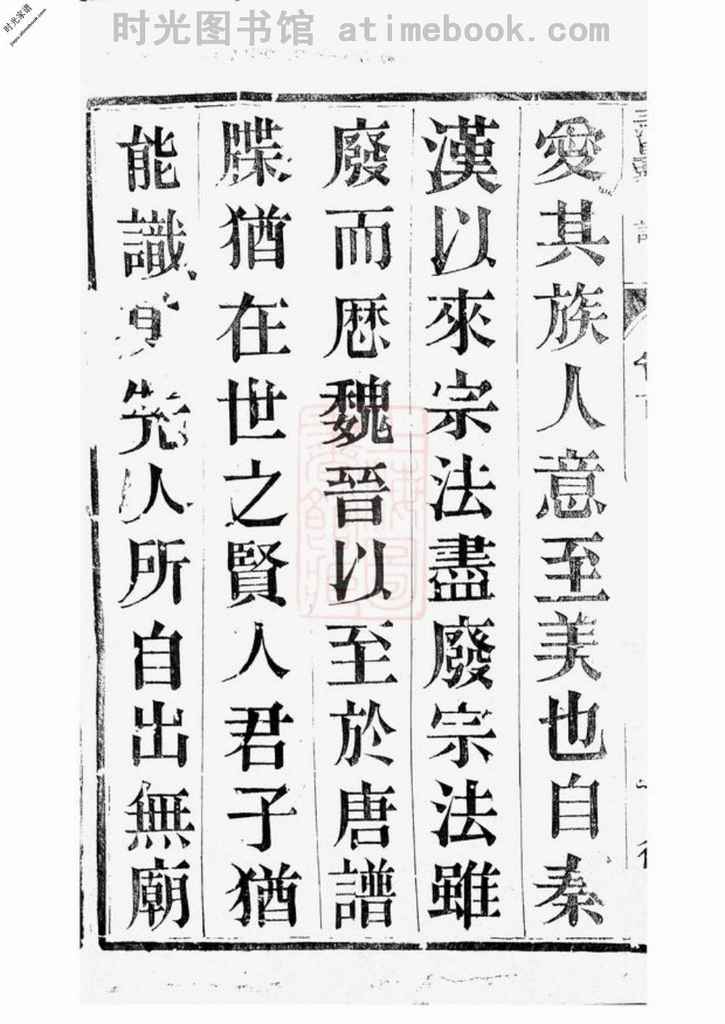 时光图书馆 atimebook.com
时光家谱
愛其族人意至美也自秦
漢以來宗法盡廢宗法雖
廢而厯魏晉以至於唐譜
牒猶在世之賢人君子猶
能識其先人所自出無廟